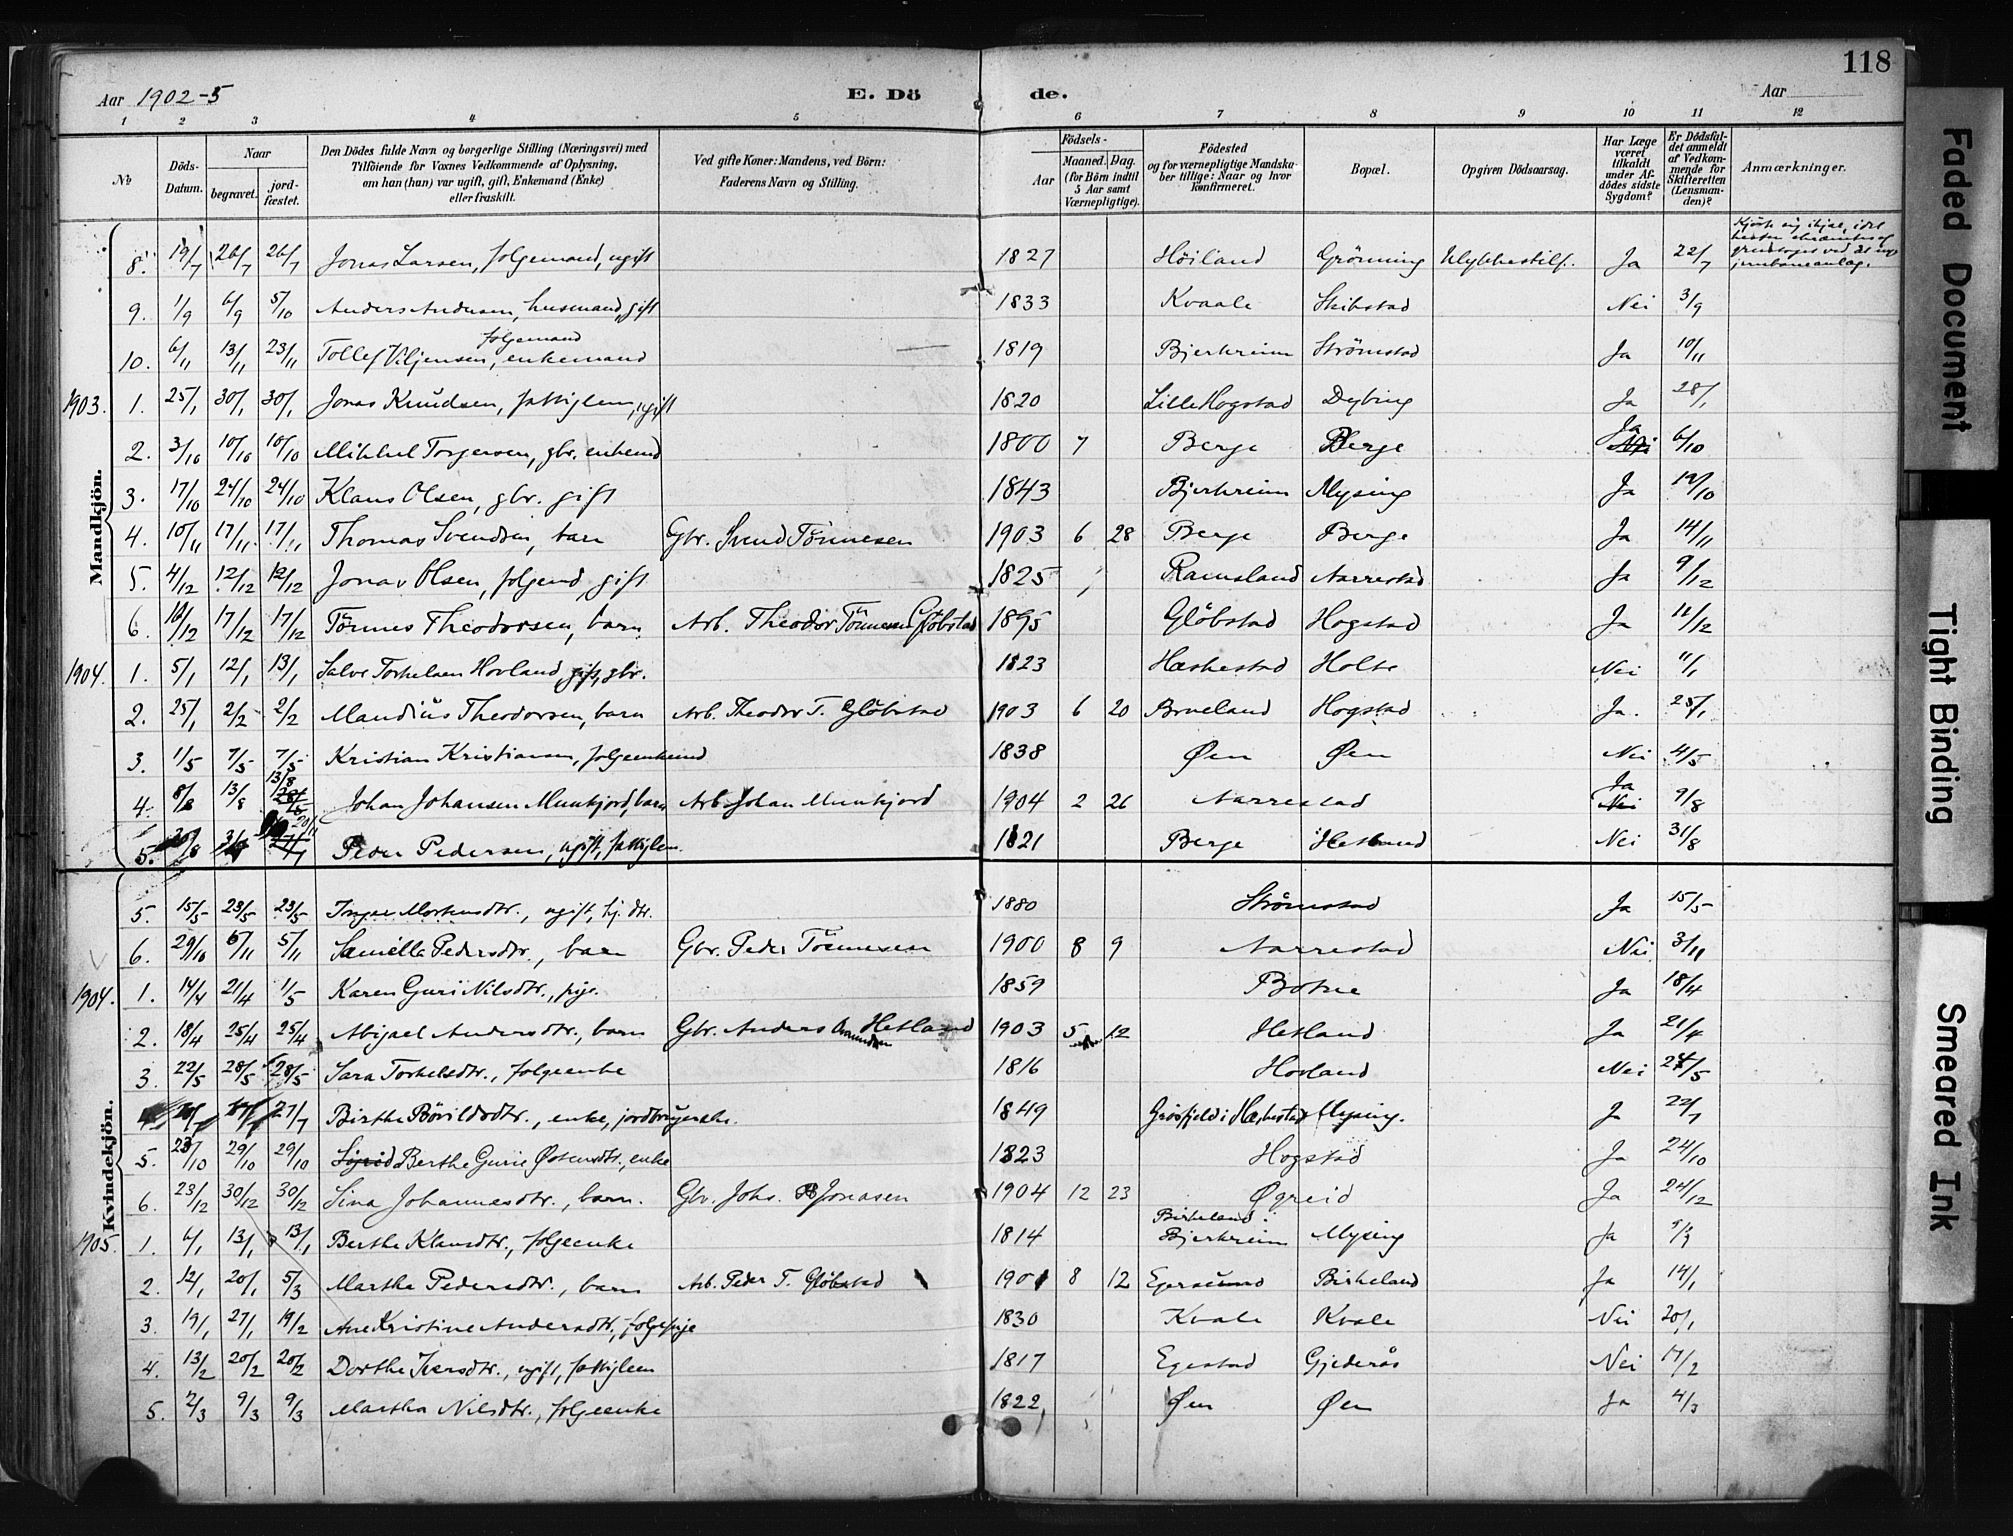 118
Aar 1902-5
E. Dö
de.
Aar
1 2 3 4 5 6 7 8 9 10 11 12
№
Döds-Datum.
Naar
begravet.
jord-fæstet.
Den Dödes fulde Navn og borgerlige Stilling (Næringsvei) med
Tilföiende for Voxnes Vedkommende af Oplysning,
om han (hun) var ugift, gift, Enkemand (Enke)
eller fraskilt.
Ved gifte Koner: Mandens, ved Börn:
Faderens Navn og Stilling.
Födsels-
Aar
Maaned. Dag.
(for Börn indtil
5 Aar samt
Værnepligtige).
Födested
og for værnepligtige Mandska-
ber tillige: Naar og hvor
konfirmeret.
Bopæl.
Opgiven Dödsaarsag.
Har Læge
været
tilkaldt
under Af-
dödes sidste
Sygdom?
Er Dödsfal-
det anmeldt
af Vedkom-
mende for
Skifteretten
(Lensman-
den)?
Anmærkninger.
Mandkjön.
8. 19/7 26/7 26/7 Jonas Larsen, folgemand, ugift 1827 Höiland Grönning Ulykkestilf. Ja 22/7
9. 1/9 6/9 5/10 Anders Andersen, husmand, gift 1833 Kvaale Skibstad Nei 3/9
folgemand
10. 6/11 13/11 23/11 Tollef Viljemsen, enkemand 1819 Bjerkreim Strömstad Ja 10/11
1903. 1. 25/1 30/1 30/1 Jonas Knudsen, fattiglem, ugift 1820 Lille Hogstad Dybing Ja 28/1
2. 3/10 10/10 10/10 Mikkel Torgersen, gbr. enkemd 1800 7 Berge Berge Ja Nei 6/10
3. 17/10 24/10 24/10 Klaus Olsen, gbr. gift 1843 Bjerkreim Mysing Ja 19/10
4. 10/11 17/11 17/11 Thomas Svendsen, barn Gbr. Svend Tönnesen 1903 6 28 Berge Berge Ja 14/11
5. 4/12 12/12 12/12 Jonas Olsen, folgemd, gift 1825 Ramsland Narrestad Ja 9/12
6. 10/12 17/12 17/12 Tönnes Theodorsen, barn Arb. Theodor Tönnesen Glöbstad 1895 Glöbstad Hogstad Ja 12/12
1904. 1. 5/1 12/1 13/1 Salve Torkelsen Hovland, gift, gbr. 1823 Hæskestad Holte Nei 11/1
2. 25/1 2/2 2/2 Mandius Theodorsen, barn Arb. Theodor T. Glöbstad 1903 6 20 Brueland Hogstad Ja. 25/1
3. 1/5 7/5 7/5 Kristian Kristiansen, folgeenkemd 1838 Øen Øen Nei 4/5
4. 8/8 13/8 13/8 Johan Johansen Munkjord, barn Arb. Johan Munkjord 1904 2 26 Narrestad Ja Nei 9/8
5. Peder Pedersen, ugift, fattiglem. 1821 Berge Hetland Nei 31/8
Kvindekjön.
5. 15/5 23/5 23/5 Inger Mortensdtr., ugift, hj. dtr. 1880 Strömstad Ja 15/5
6. 29/10 5/11 5/11 Samella Pedersdtr., barn Gbr. Peder Tönnesen 1900 8 9 Narrestad Nei 3/11
1904. 1. 14/4 21/4 1/5 Karen Guri Nilsdtr., pige. 1859 Botne Ja 18/4
2. 18/4 25/4 25/4 Abigael Andersdtr., barn Gbr. Anders Hetland 1903 5 12 Hetland Ja 21/4
3. 22/5 28/5 28/5 Sara Torkelsdtr., folgeenke 1816 Hovland Nei 24/5
27/7 Birthe Bövildsdtr., enke, jordbrugerske. 1849 Grösfjeld i Hæskestad Mysing. J 22/7
5. 23/10 29/10 29/10 Sigrid Berthe Gurie Østensdtr., enke 1823 Hogstad Ja 24/10
6. 23/12 30/12 30/12 Sina Johannesdtr., barn. Gbr. Johs. Jonasen 1904 12 23 Øgreid Ja 24/12
1905. 1. 6/1 13/1 13/1 Berthe Klausdtr., folgeenke 1814 Birkeland i Bjerkreim Mysing Ja
2. 12/1 20/1 5/3 Martha Pedersdtr., barn Arb. Peder T. Glöbstad 1901 8 12 Egersund Birkeland Ja 14/1
3. 19/1 27/1 19/2 Ane Kristine Andersdtr., folgepige 1830 Kvale Kvale Nei 20/1
4. 13/2 20/2 20/2 Dorthe Iversdtr., ugift, fattiglem 1817 Egestad Gjederås Nei 17/2
5. 2/3 9/3 9/3 Martha Nilsdtr., folgeenke 1822 Øen Øen Ja 4/3
Faded Document
Tight Binding
Smeared Ink